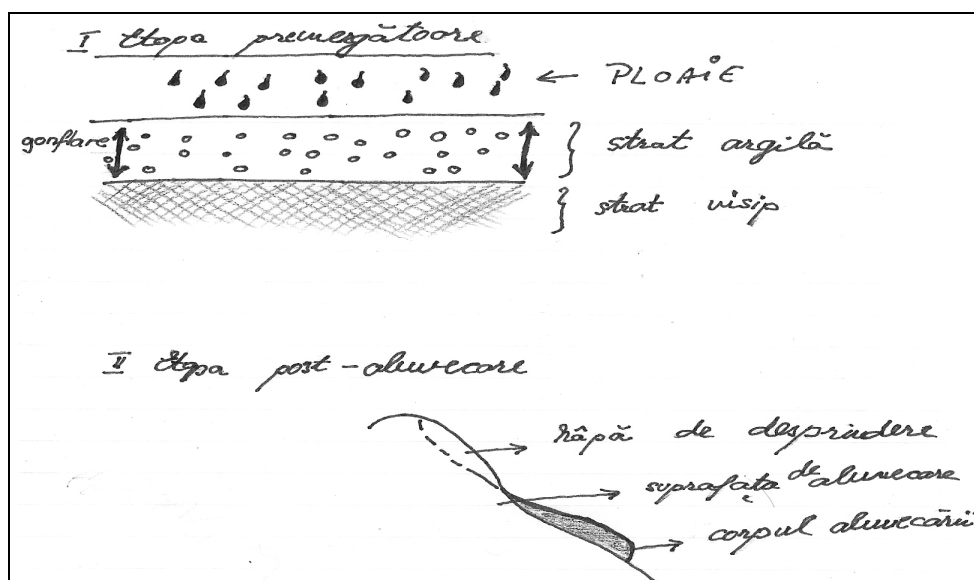 I Etapa premergătoare
← PLOAIE
gonflare
strat argilă
strat nisip
II Etapa post-alunecare
râpă de desprindere
suprafața de alunecare
corpul alunecării